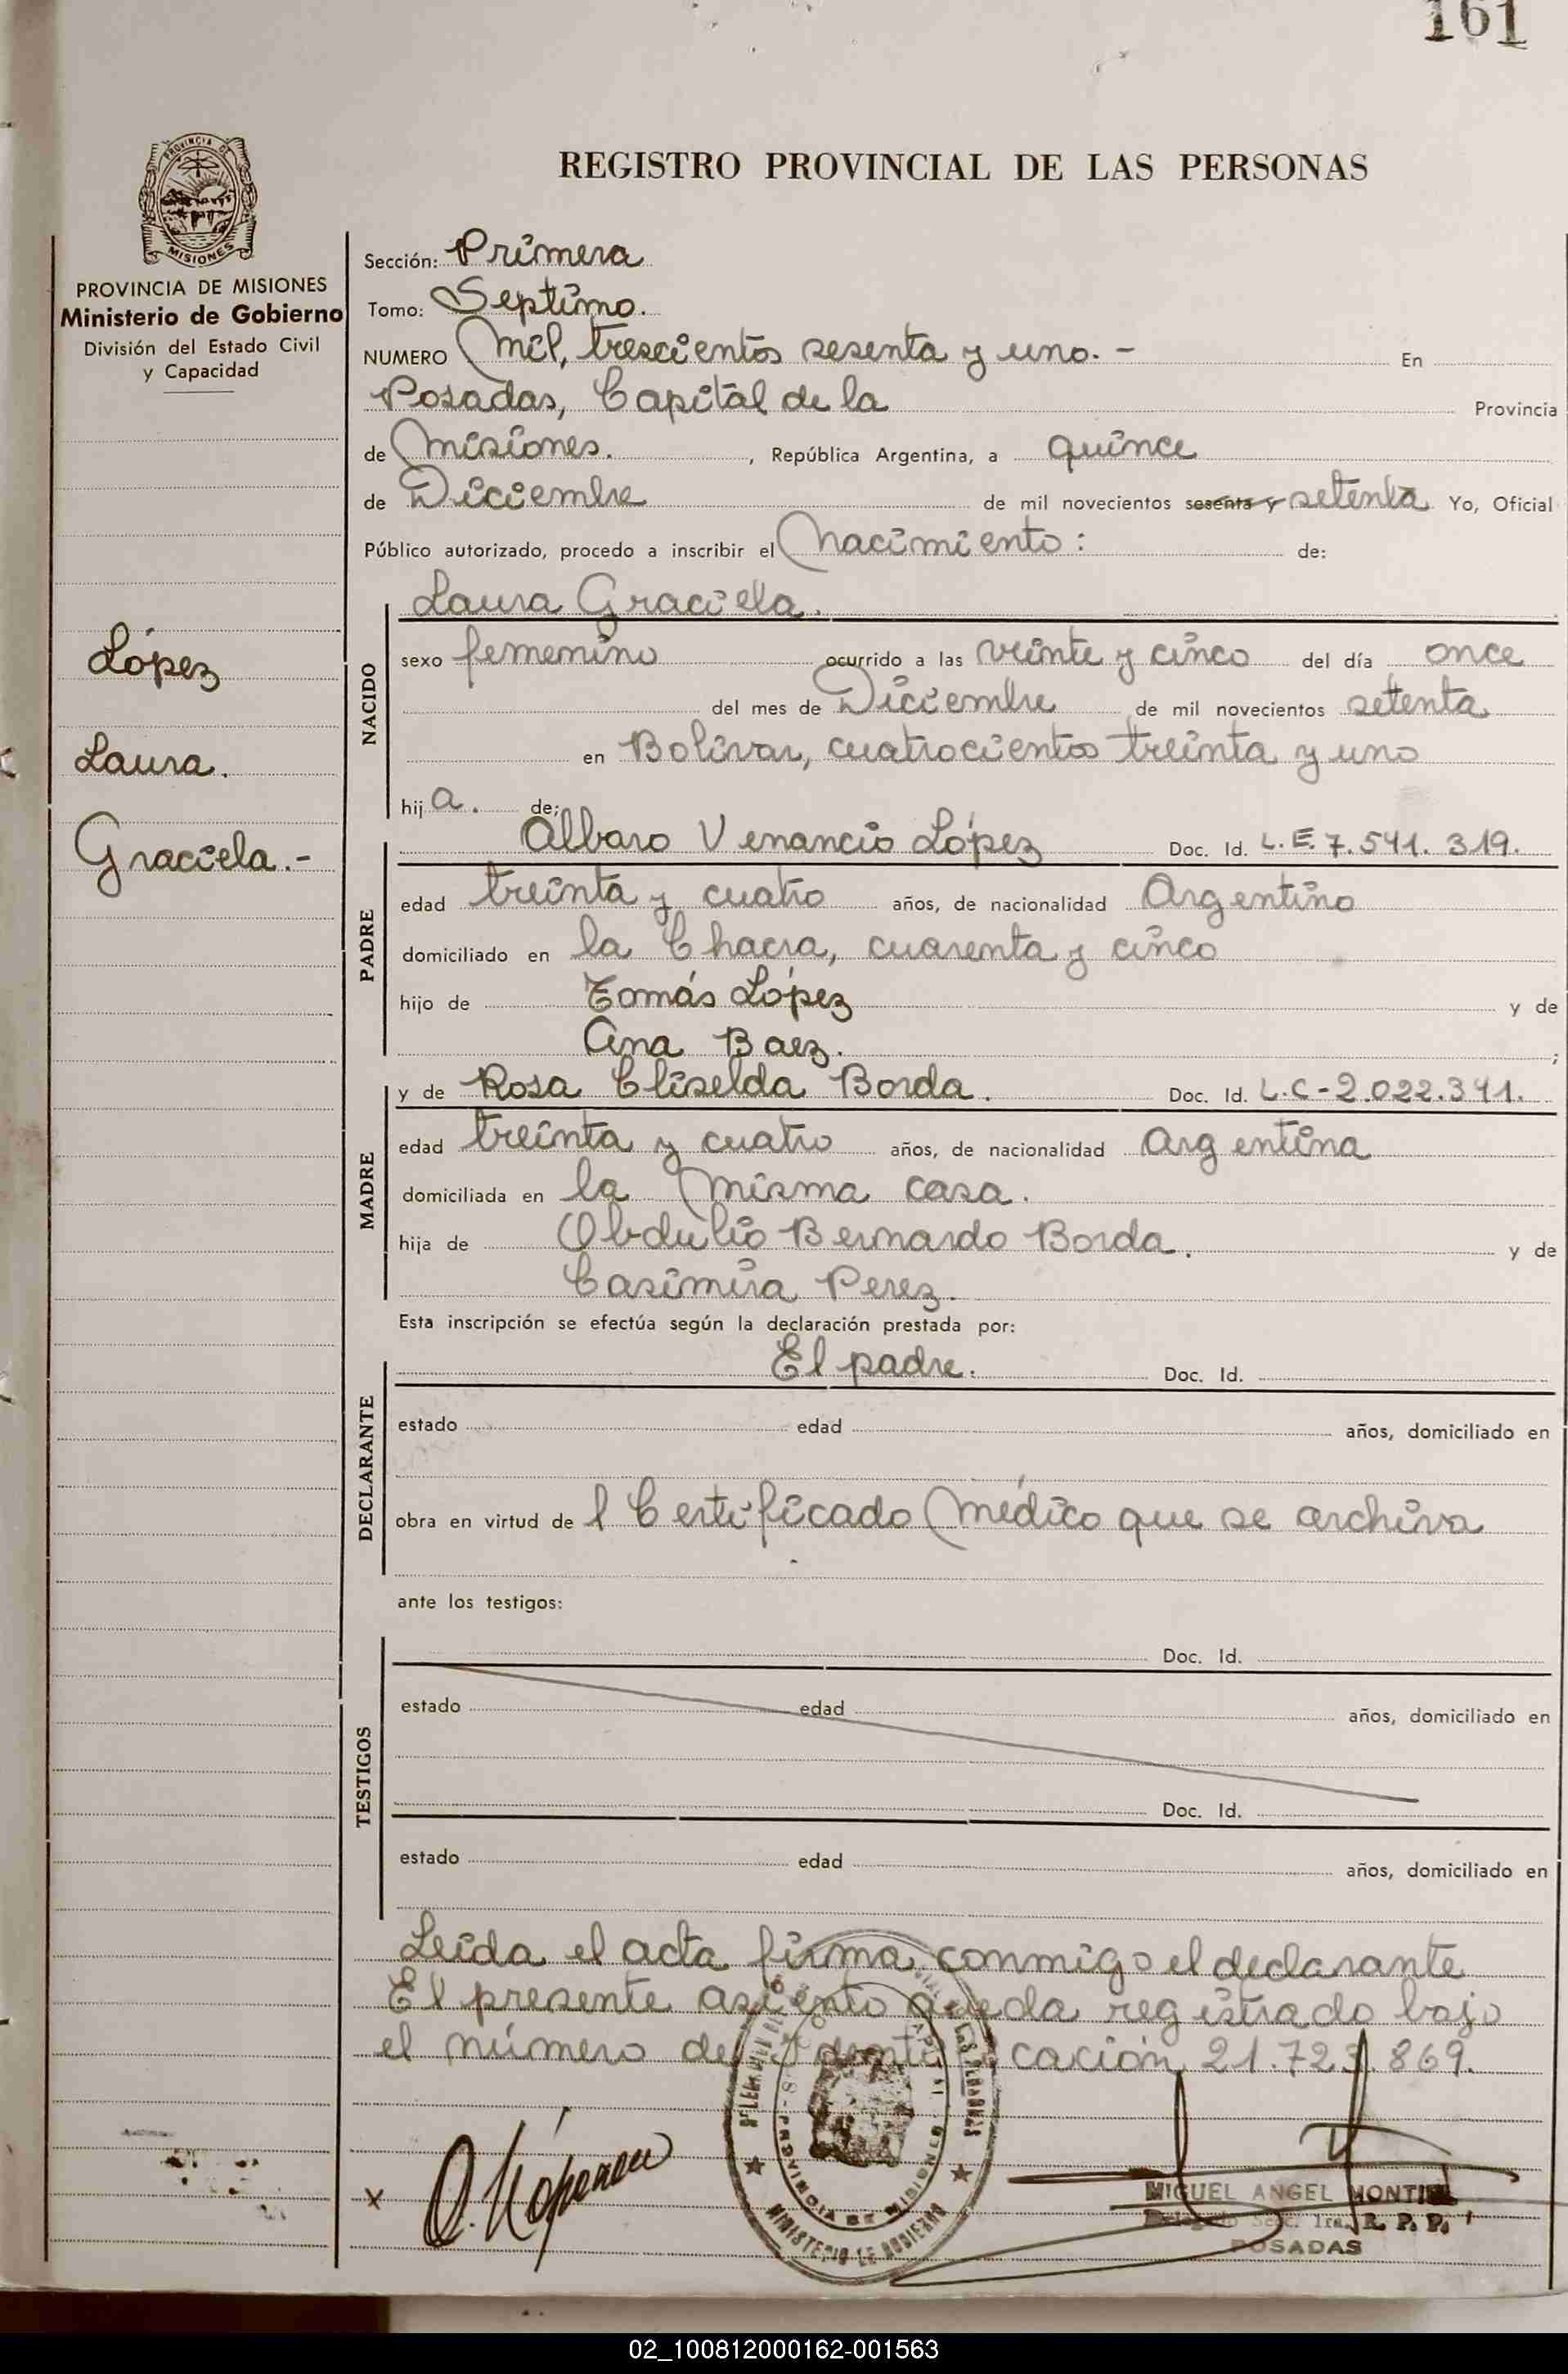 161
REGISTRO PROVINCIAL DE LAS PERSONAS
PROVINCIA DE
MISIONES
PROVINCIA DE MISIONES
Ministerio de Gobierno
División del Estado Civil
y Capacidad
López
Laura.
Graciela.-
Sección: Primera
Tomo: Septimo.
NUMERO Mil, trescientos sesenta y uno. - En
Posadas, Capital de la Provincia
de Misiones. , República Argentina, a quince
de Diciembre de mil novecientos sesenta y setenta Yo, Oficial
Público autorizado, procedo a inscribir el Nacimiento: de:
NACIDO
Laura Graciela.
sexo femenino ocurrido a las veinte y cinco del día once
del mes de Diciembre de mil novecientos setenta
en Bolivar, cuatrocientos treinta y uno
hij a. de:
PADRE
Albaro Venancio López Doc. Id. L.E. 7.541.319.
edad treinta y cuatro años, de nacionalidad Argentino
domiciliado en la Chacra, cuarenta y cinco
hijo de Tomás López y de
Ana Baez. ;
MADRE
y de Rosa Cliselda Borda. Doc. Id. L.C-2.022.341.
edad treinta y cuatro años, de nacionalidad Argentina
domiciliada en la misma casa.
hija de Obdulio Bernardo Borda. y de
Casimira Perez.
Esta inscripción se efectúa según la declaración prestada por:
DECLARANTE
El padre. Doc. Id.
estado edad años, domiciliado en
obra en virtud de l Certificado Médico que se archiva
ante los testigos:
TESTIGOS
Doc. Id.
estado edad años, domiciliado en
Doc. Id.
estado edad años, domiciliado en
Leida el acta firma conmigo el declarante
El presente asiento queda registrado bajo
el número de Identificación 21.723.869.
PROVINCIA DE MISIONES
MINISTERIO DE GOBIERNO
X
MIGUEL ANGEL MONTIEL
Delegado Secc. 1ra. R. P. P.
POSADAS
02_100812000162-001563